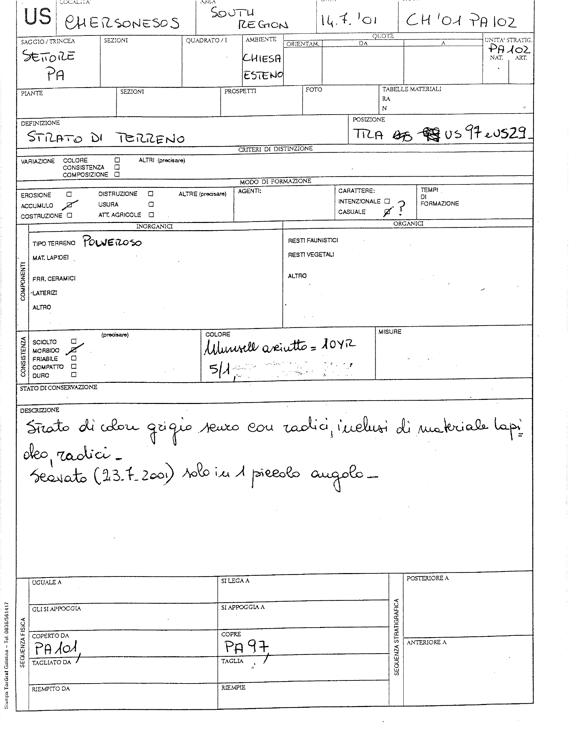 US
LOCALITÀ
CHERSONESOS
AREA
SOUTH REGION
14.7.'01
CH'01 PA102
SAGGIO / TRINCEA
SETTORE
PA
SEZIONI
QUADRATO / I
AMBIENTE
CHIESA
ESTENO
QUOTE
ORIENTAM.
DA
A
UNITA' STRATIG.
PA102
NAT. ART.
PIANTE
SEZIONI
PROSPETTI
FOTO
TABELLE MATERIALI
RA
N
DEFINIZIONE
STRATO DI TERRENO
POSIZIONE
TRA US 97 e US29_
CRITERI DI DISTINZIONE
VARIAZIONE COLORE
CONSISTENZA
COMPOSIZIONE
ALTRI (precisare)
MODO DI FORMAZIONE
EROSIONE
ACCUMULO
COSTRUZIONE
DISTRUZIONE
USURA
ATT. AGRICOLE
ALTRE (precisare)
AGENTI:
CARATTERE:
INTENZIONALE
CASUALE ?
TEMPI
DI
FORMAZIONE
COMPONENTI
INORGANICI
TIPO TERRENO POLVEROSO
MAT. LAPIDEI
FRR. CERAMICI
LATERIZI
ALTRO
ORGANICI
RESTI FAUNISTICI
RESTI VEGETALI
ALTRO
CONSISTENZA
(precisare)
SCIOLTO
MORBIDO
FRIABILE
COMPATTO
DURO
COLORE
Munsell asciutto = 10YR
5/1
MISURE
STATO DI CONSERVAZIONE
DESCRIZIONE
Strato di colore grigio scuro con radici, inclusi di materiale lapi=
deo, radici_
Scavato (23.7.2001) solo in 1 piccolo angolo_
SEQUENZA FISICA
UGUALE A
SI LEGA A
GLI SI APPOGGIA
SI APPOGGIA A
COPERTO DA
PA101,
COPRE
PA97,
TAGLIATO DA
TAGLIA
RIEMPITO DA
RIEMPIE
SEQUENZA STRATIGRAFICA
POSTERIORE A
ANTERIORE A